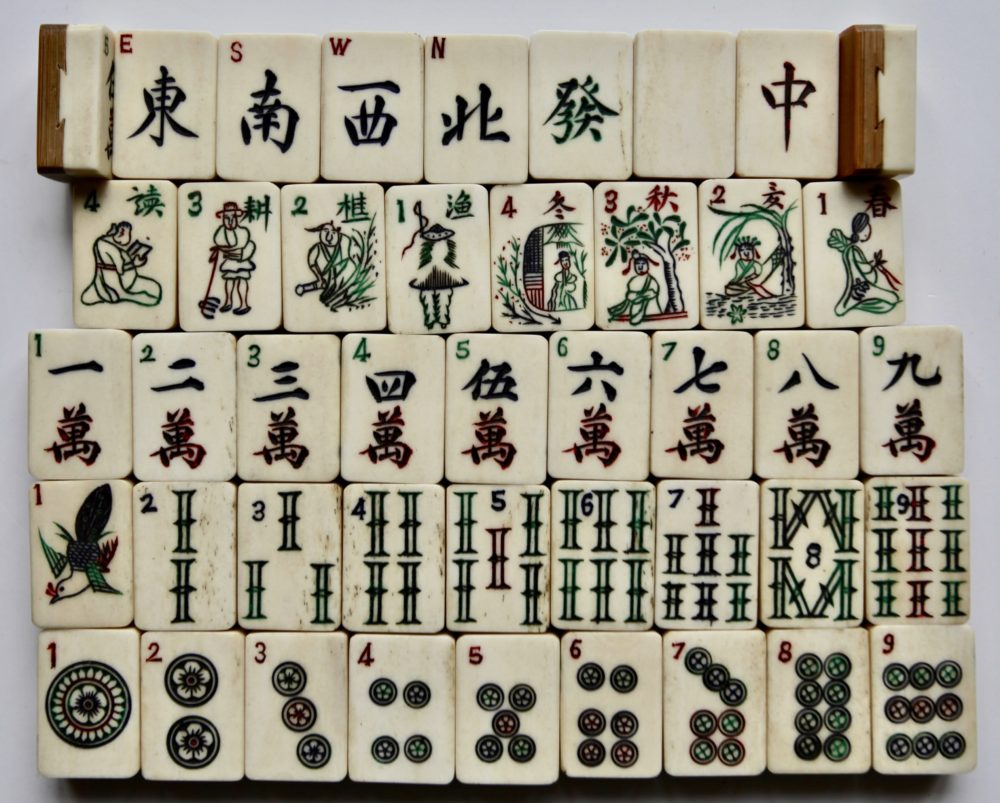 E S W N
東 南 西 北 發 中
4 读 3 耕 2 樵 1 渔 4 冬 3 秋 2 1 春
1 2 3 4 5 6 7 8 9
一 二 三 四 伍 六 七 八 九
萬 萬 萬 萬 萬 萬 萬 萬 萬
1 2 3 4 5 6 7 8 9
1 2 3 4 5 6 7 8 9